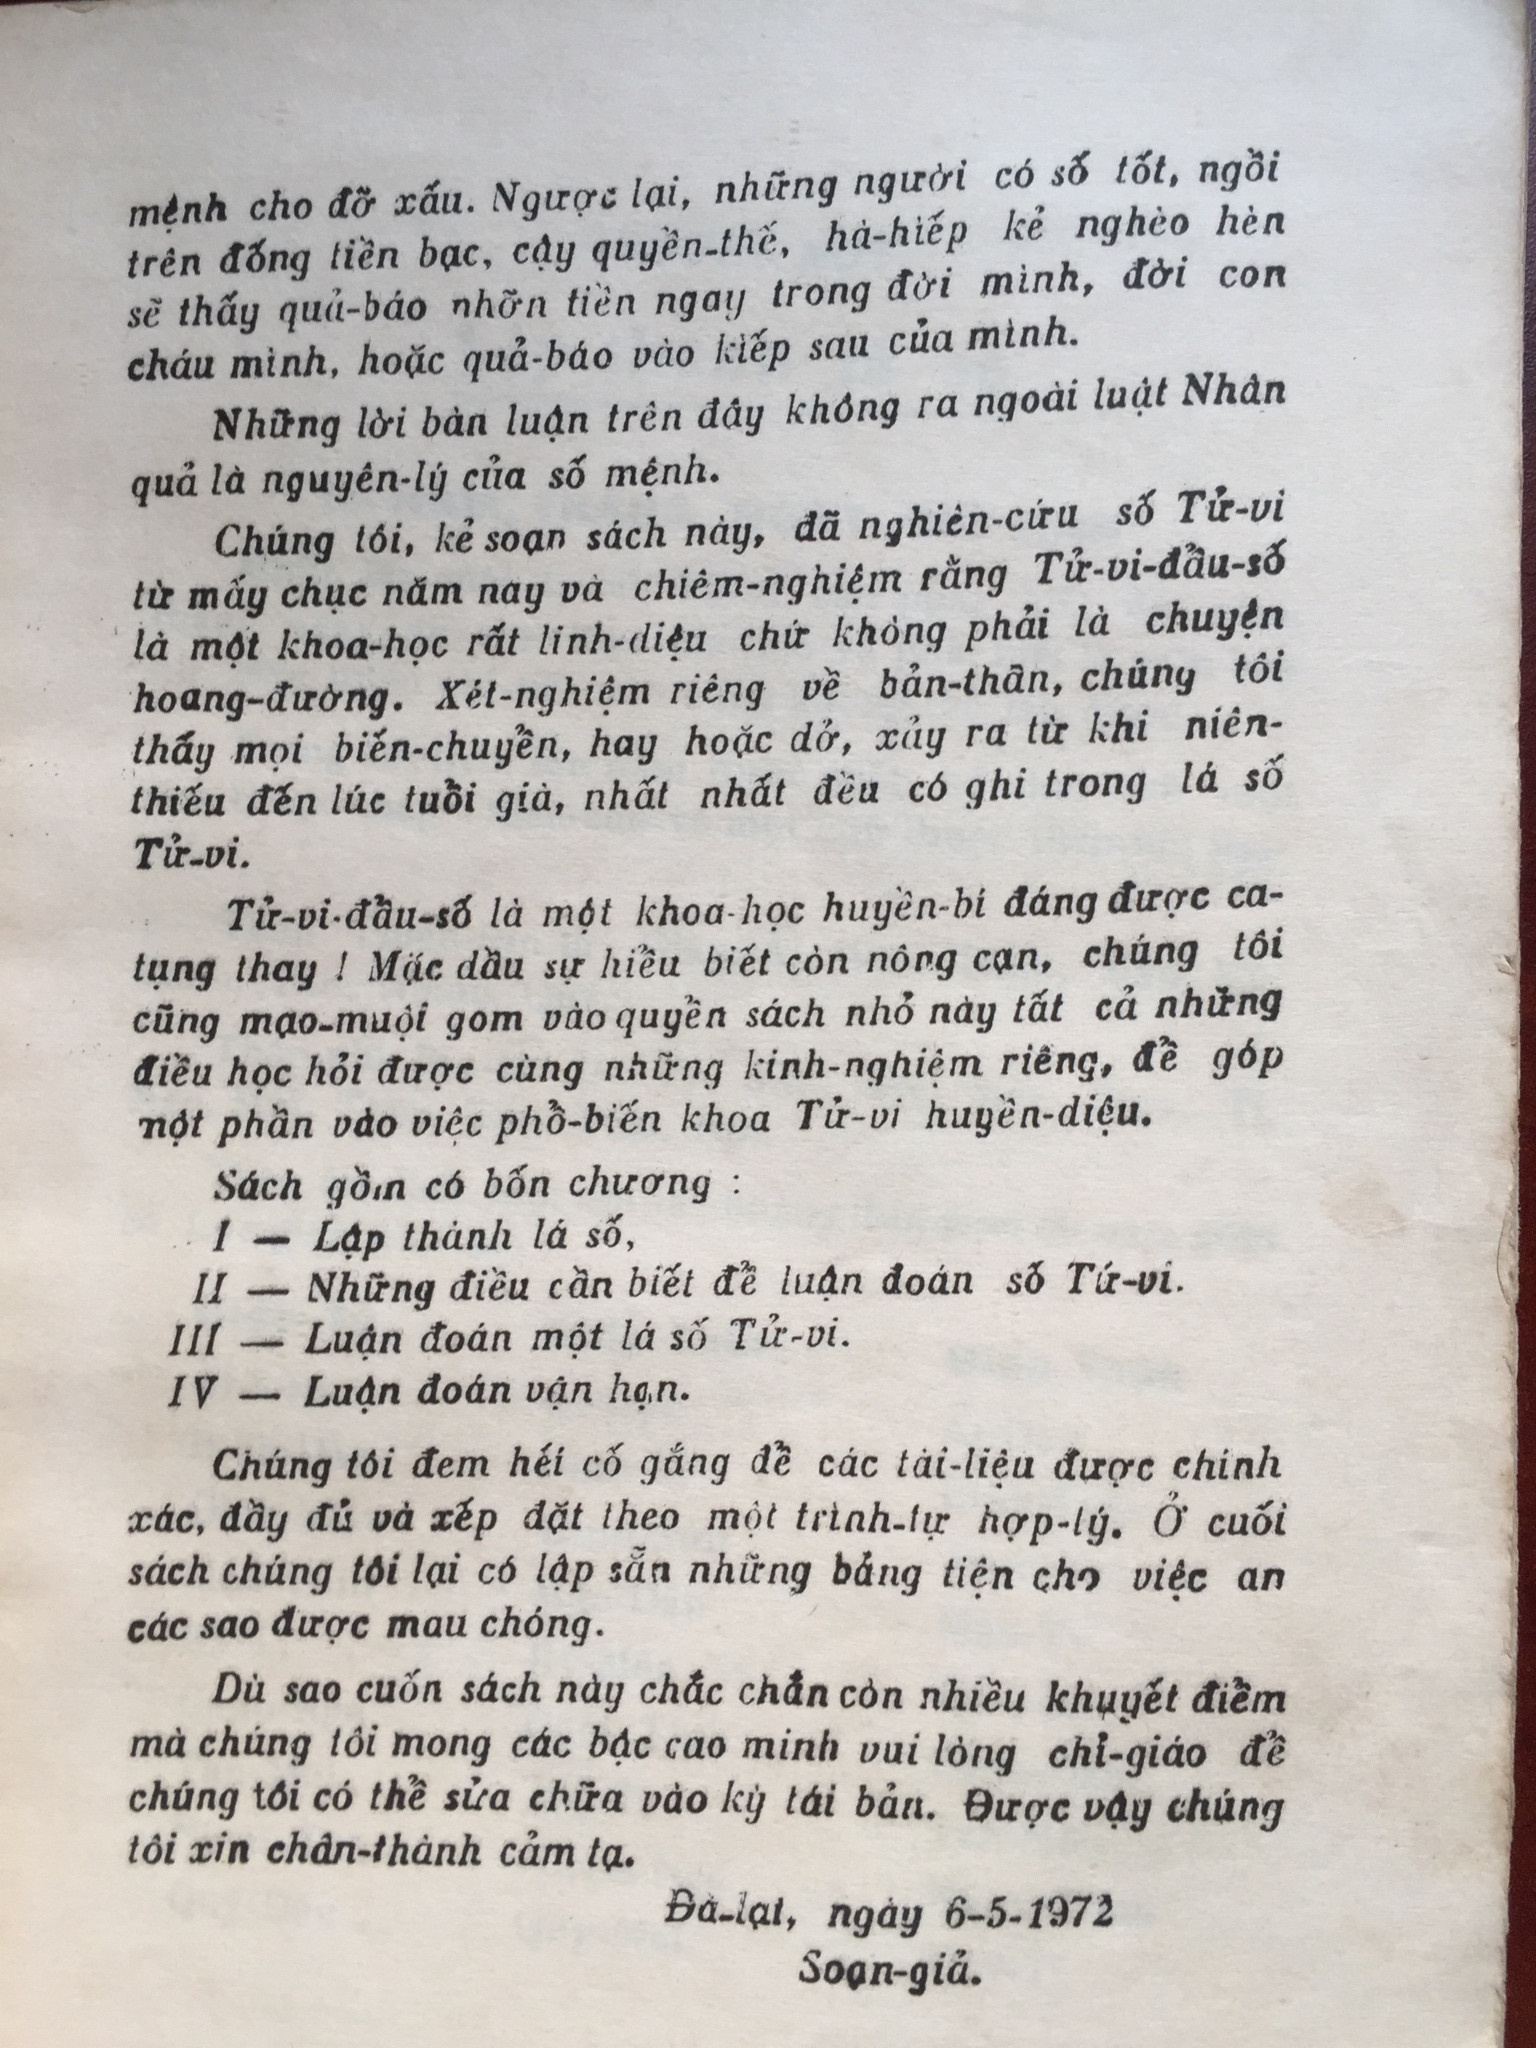 mệnh cho đỡ xấu. Ngược lại, những người có số tốt, ngồi
trên đống tiền bạc, cậy quyền-thế, hà-hiếp kẻ nghèo hèn
sẽ thấy quả-báo nhỡn tiền ngay trong đời mình, đời con
cháu mình, hoặc quả-báo vào kiếp sau của mình.
Những lời bàn luận trên đây không ra ngoài luật Nhân
quả là nguyên-lý của số mệnh.
Chúng tôi, kẻ soạn sách này, đã nghiên-cứu số Tử-vi
từ mấy chục năm nay và chiêm-nghiệm rằng Tử-vi-đẩu-số
là một khoa-học rất linh-diệu chứ không phải là chuyện
hoang-đường. Xét-nghiệm riêng về bản-thân, chúng tôi
thấy mọi biến-chuyển, hay hoặc dở, xảy ra từ khi niên-
thiếu đến lúc tuổi già, nhất nhất đều có ghi trong lá số
Tử-vi.
Tử-vi-đẩu-số là một khoa-học huyền-bí đáng được ca-
tụng thay ! Mặc dầu sự hiểu biết còn nông cạn, chúng tôi
cũng mạo-muội gom vào quyển sách nhỏ này tất cả những
điều học hỏi được cùng những kinh-nghiệm riêng, để góp
một phần vào việc phổ-biến khoa Tử-vi huyền-diệu.
Sách gồm có bốn chương :
I — Lập thành lá số,
II — Những điều cần biết để luận đoán số Tứ-vi.
III — Luận đoán một lá số Tử-vi.
IV — Luận đoán vận hạn.
Chúng tôi đem hết cố gắng để các tài-liệu được chính
xác, đầy đủ và xếp đặt theo một trình-tự hợp-lý. Ở cuối
sách chúng tôi lại có lập sẵn những bảng tiện cho việc an
các sao được mau chóng.
Dù sao cuốn sách này chắc chắn còn nhiều khuyết điểm
mà chúng tôi mong các bậc cao minh vui lòng chỉ-giáo để
chúng tôi có thể sửa chữa vào kỳ tái bản. Được vậy chúng
tôi xin chân-thành cảm tạ.
Đà-lạt, ngày 6-5-1972
Soạn-giả.